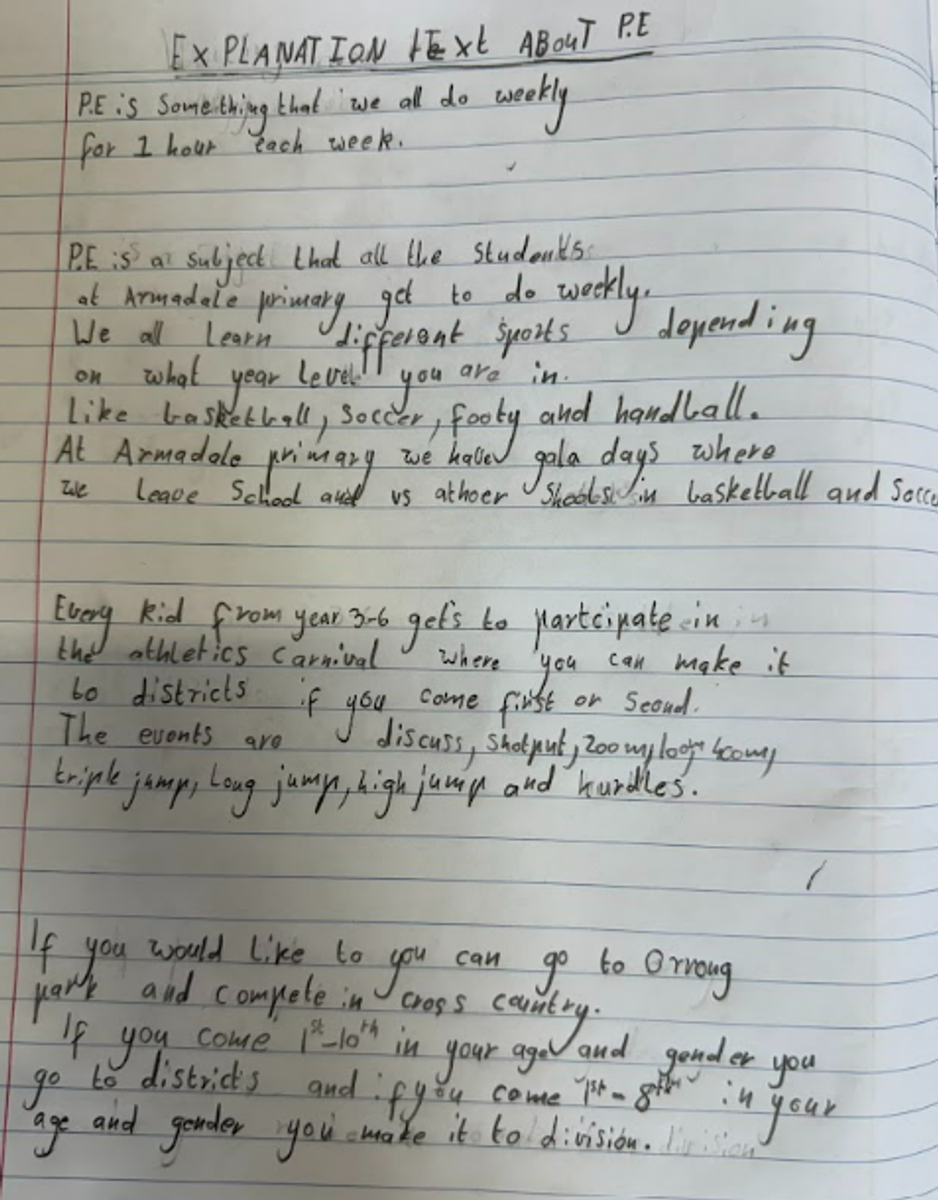 EXPLANATION tExt ABouT P.E
P.E is Something that we all do weekly
for 1 hour each week.
P.E is a subject that all the students
at Armadale primary get to do weekly.
We all learn different sports depending
on what year level you are in.
Like basketball, soccer, footy and handball.
At Armadale primary we have gala days where
we leave School and vs athoer Shools in basketball and Socce
Every kid from year 3-6 gets to partcipate in in
the athletics carnival where you can make it
to districts if you come first or Seond.
The events are discuss, shotput, 200m, 100m 400m,
triple jump, long jump, high jump and hurdles.
If you would like to you can go to Orrong
park and compete in cross country.
If you come 1st-10th in your age and gender you
go to districts and if you come 1st - 8th in your
age and gender you make it to division. division